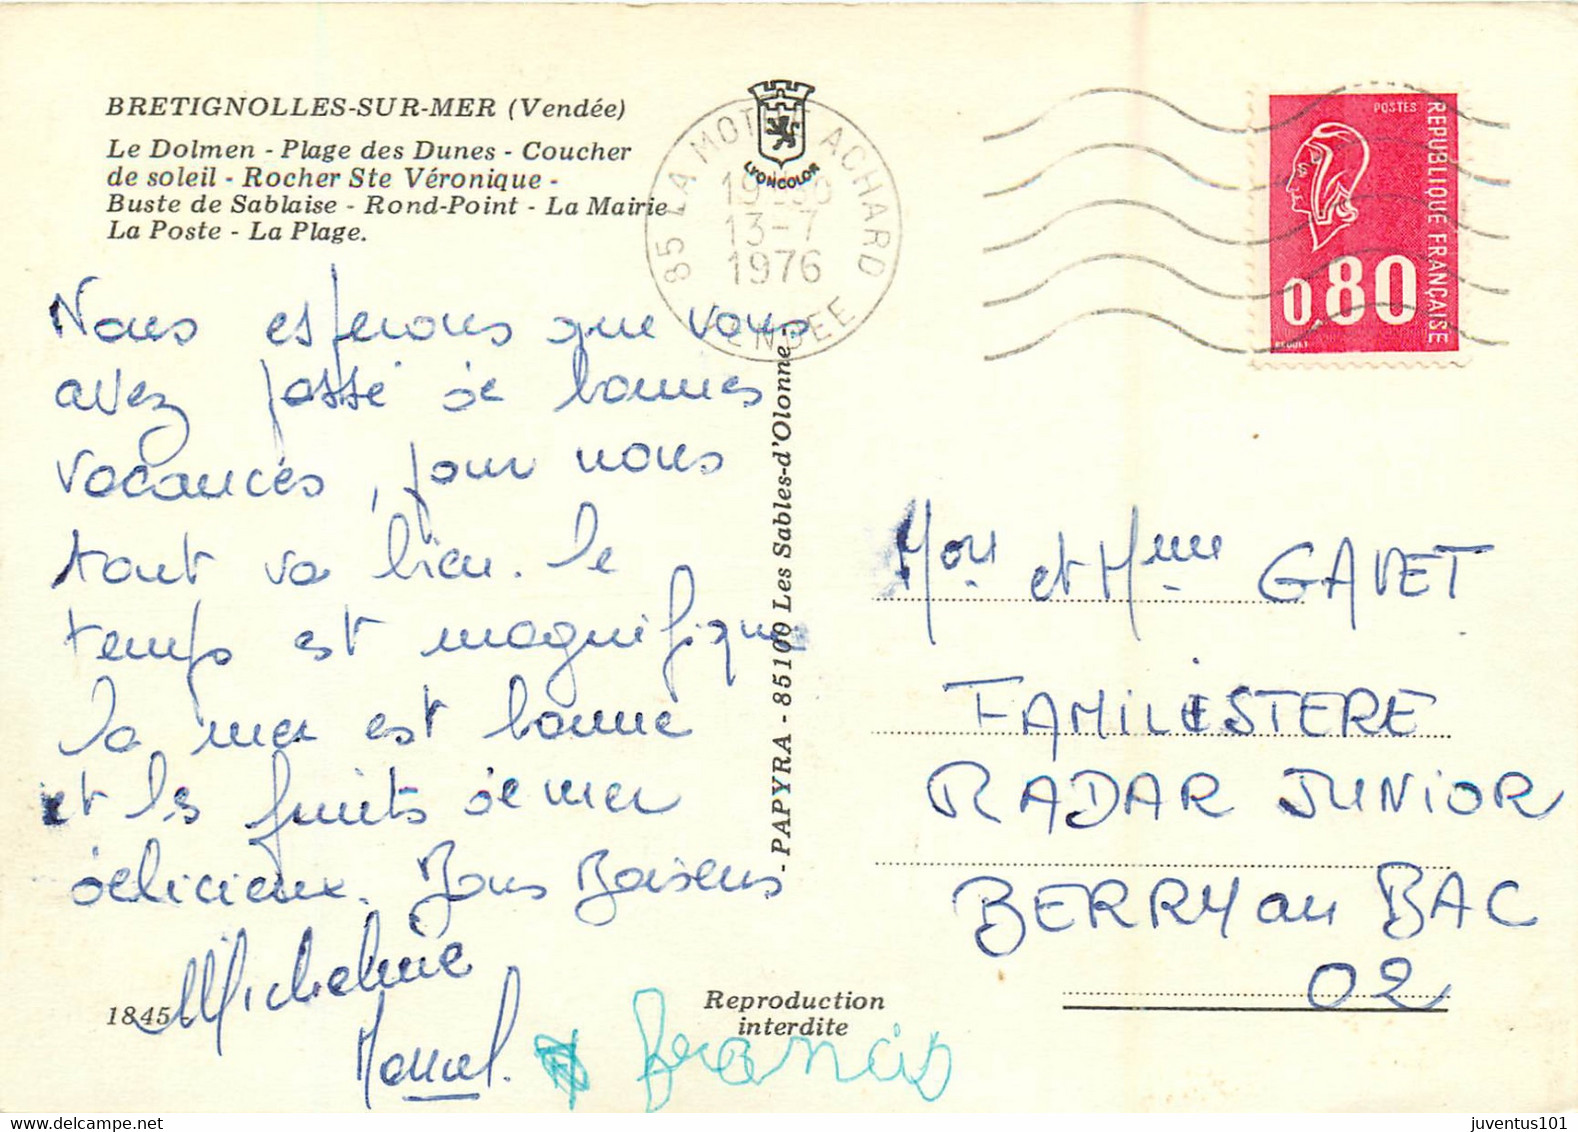 BRETIGNOLLES-SUR-MER (Vendée)
Le Dolmen - Plage des Dunes - Coucher
de soleil - Rocher Ste Véronique -
Buste de Sablaise - Rond-Point - La Mairie
La Poste - La Plage.
LYONCOLOR
85 LA MOTHE ACHARD
13-7
1976
VENDEE
POSTES
REPUBLIQUE FRANÇAISE
0,80
BEQUET
Nous esperons que vous
avez passé de bonnes
vacances, pour nous
tout va bien. le
temps est magnifique
la mer est bonne
et les fruits de mer
délicieux. Bons Baisers
Micheline
Marcel.
& francis
1845
- PAPYRA - 85100 Les Sables-d'Olonne -
Reproduction
interdite
Mon et Mme GAVET
FAMILISTERE
RADAR JUNIOR
BERRY au BAC
02
juventus101